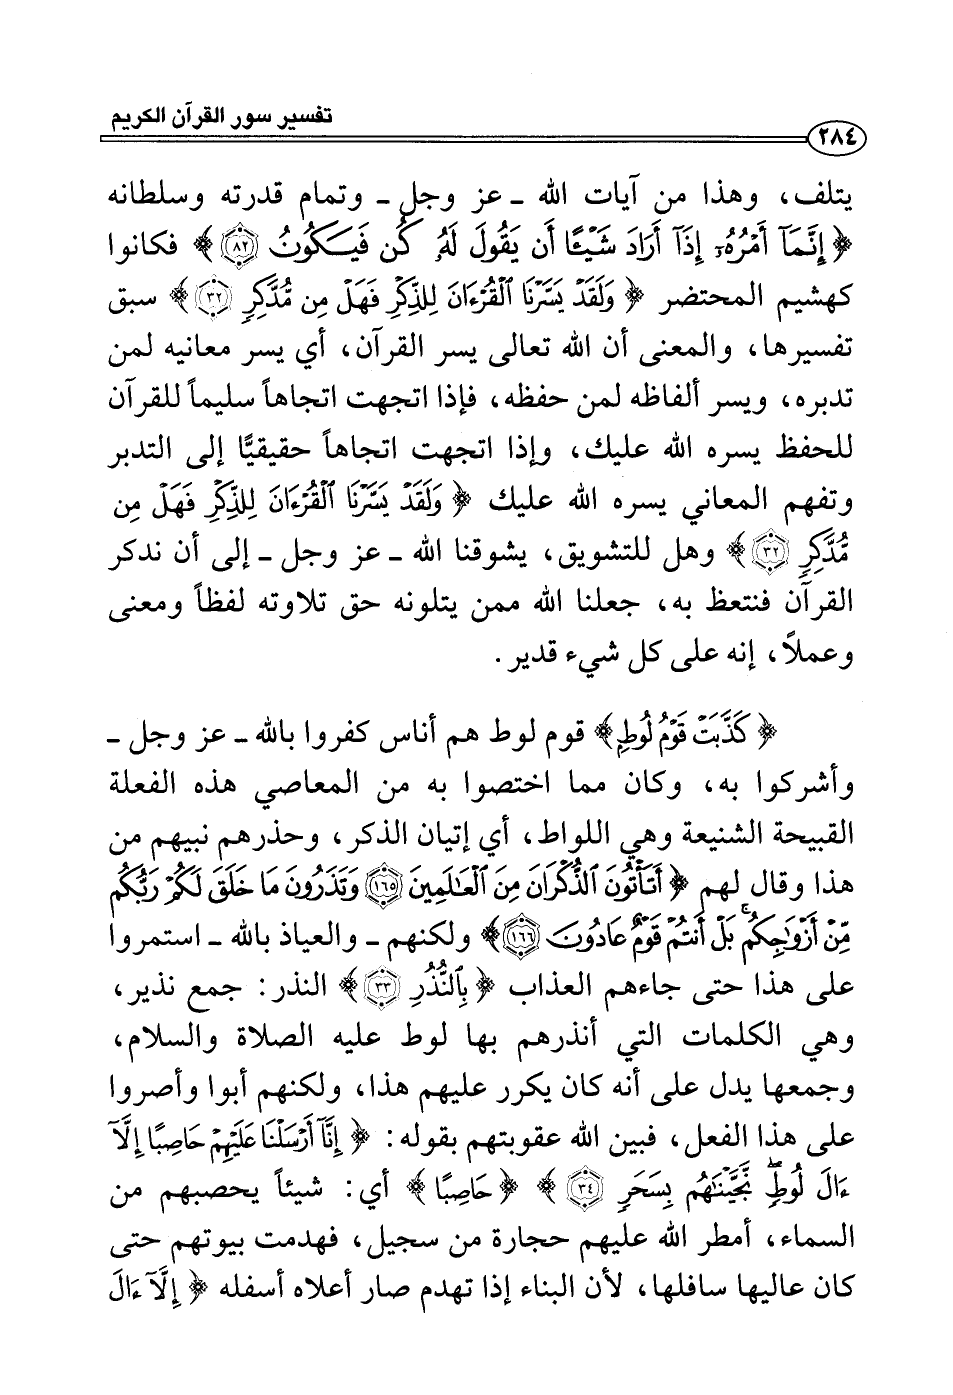 تفسير سور القرآن الكريم
٢٨٤
يتلف، وهذا من آيات الله ـ عز وجل ـ وتمام قدرته وسلطانه
﴿ إِنَّمَآ أَمْرُهُۥٓ إِذَآ أَرَادَ شَيْـًٔا أَن يَقُولَ لَهُۥ كُن فَيَكُونُ ۝٨٢ ﴾ فكانوا
كهشيم المحتضر ﴿ وَلَقَدْ يَسَّرْنَا ٱلْقُرْءَانَ لِلذِّكْرِ فَهَلْ مِن مُّدَّكِرٍ ۝٣٢ ﴾ سبق
تفسيرها، والمعنى أن الله تعالى يسر القرآن، أي يسر معانيه لمن
تدبره، ويسر ألفاظه لمن حفظه، فإذا اتجهت اتجاهاً سليماً للقرآن
للحفظ يسره الله عليك، وإذا اتجهت اتجاهاً حقيقيًّا إلى التدبر
وتفهم المعاني يسره الله عليك ﴿ وَلَقَدْ يَسَّرْنَا ٱلْقُرْءَانَ لِلذِّكْرِ فَهَلْ مِن
مُّدَّكِرٍ ۝٣٢ ﴾ وهل للتشويق، يشوقنا الله ـ عز وجل ـ إلى أن ندكر
القرآن فنتعظ به، جعلنا الله ممن يتلونه حق تلاوته لفظاً ومعنى
وعملاً، إنه على كل شيء قدير.
﴿ كَذَّبَتْ قَوْمُ لُوطٍ﴾ قوم لوط هم أناس كفروا بالله ـ عز وجل ـ
وأشركوا به، وكان مما اختصوا به من المعاصي هذه الفعلة
القبيحة الشنيعة وهي اللواط، أي إتيان الذكر، وحذرهم نبيهم من
هذا وقال لهم ﴿ أَتَأْتُونَ ٱلذُّكْرَانَ مِنَ ٱلْعَـٰلَمِينَ ۝١٦٥ وَتَذَرُونَ مَا خَلَقَ لَكُمْ رَبُّكُم
مِّنْ أَزْوَٰجِكُم ۚ بَلْ أَنتُمْ قَوْمٌ عَادُونَ ۝١٦٦ ﴾ ولكنهم ـ والعياذ بالله ـ استمروا
على هذا حتى جاءهم العذاب ﴿ بِٱلنُّذُرِ ۝٣٣ ﴾ النذر: جمع نذير،
وهي الكلمات التي أنذرهم بها لوط عليه الصلاة والسلام،
وجمعها يدل على أنه كان يكرر عليهم هذا، ولكنهم أبوا وأصروا
على هذا الفعل، فبين الله عقوبتهم بقوله: ﴿ إِنَّآ أَرْسَلْنَا عَلَيْهِمْ حَاصِبًا إِلَّآ
ءَالَ لُوطٍ ۖ نَّجَّيْنَـٰهُم بِسَحَرٍ ۝٣٤ ﴾ ﴿ حَاصِبًا ﴾ أي: شيئاً يحصبهم من
السماء، أمطر الله عليهم حجارة من سجيل، فهدمت بيوتهم حتى
كان عاليها سافلها، لأن البناء إذا تهدم صار أعلاه أسفله ﴿ إِلَّآ ءَالَ